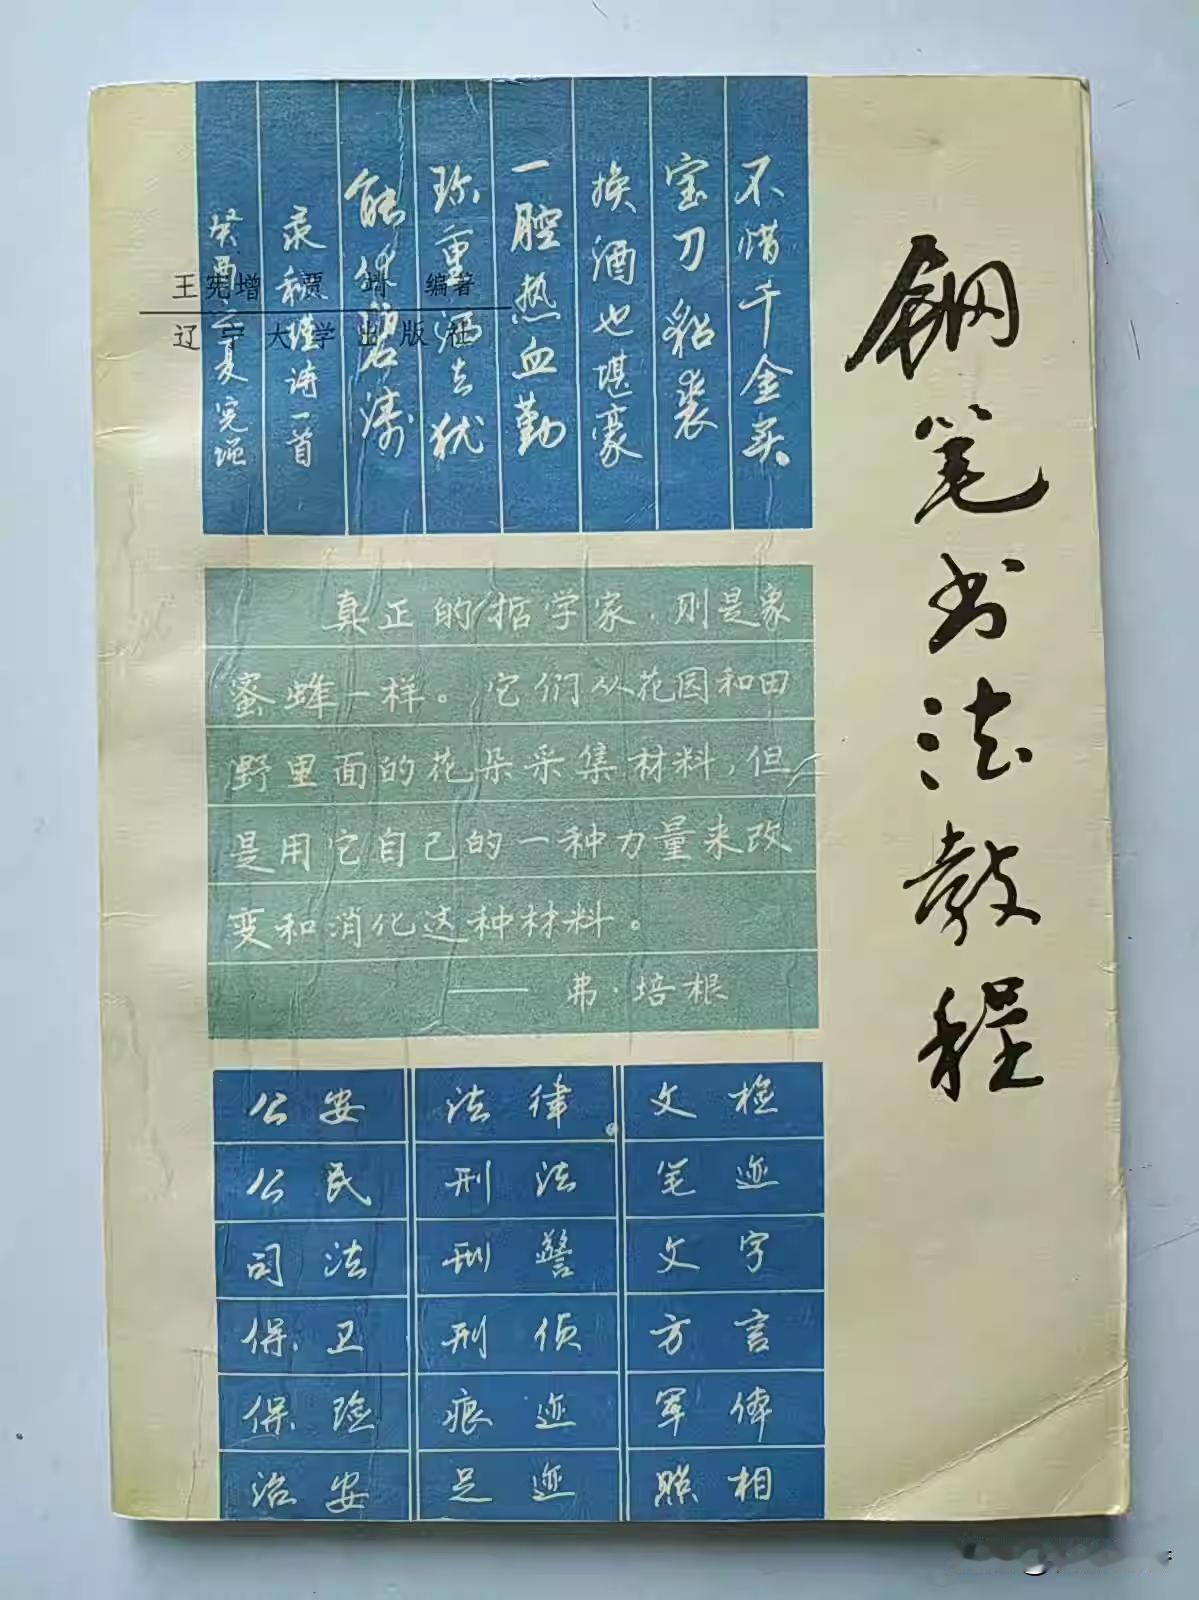 钢笔书法教程
不惜千金买
宝刀貂裘
换酒也堪豪
一腔热血勤
珍重洒去犹
能化碧涛
录秋瑾诗一首
癸酉之夏宪增
王宪增 贾 编著
辽宁大学出版社
真正的哲学家，则是象
蜜蜂一样。它们从花园和田
野里面的花朵采集材料，但
是用它自己的一种力量来改
变和消化这种材料。
—— 弗·培根
公安 法律 文检
公民 刑法 笔迹
司法 刑警 文字
保卫 刑侦 方言
保险 痕迹 军体
治安 足迹 照相